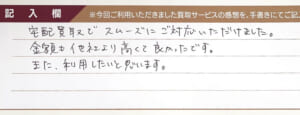 記入欄 ※今回ご利用いただきました買取サービスの感想を、手書きにてご記
宅配買取で スムーズにご対応いただけました。
金額も他社より高くて良かったです。
また、利用したいと思います。